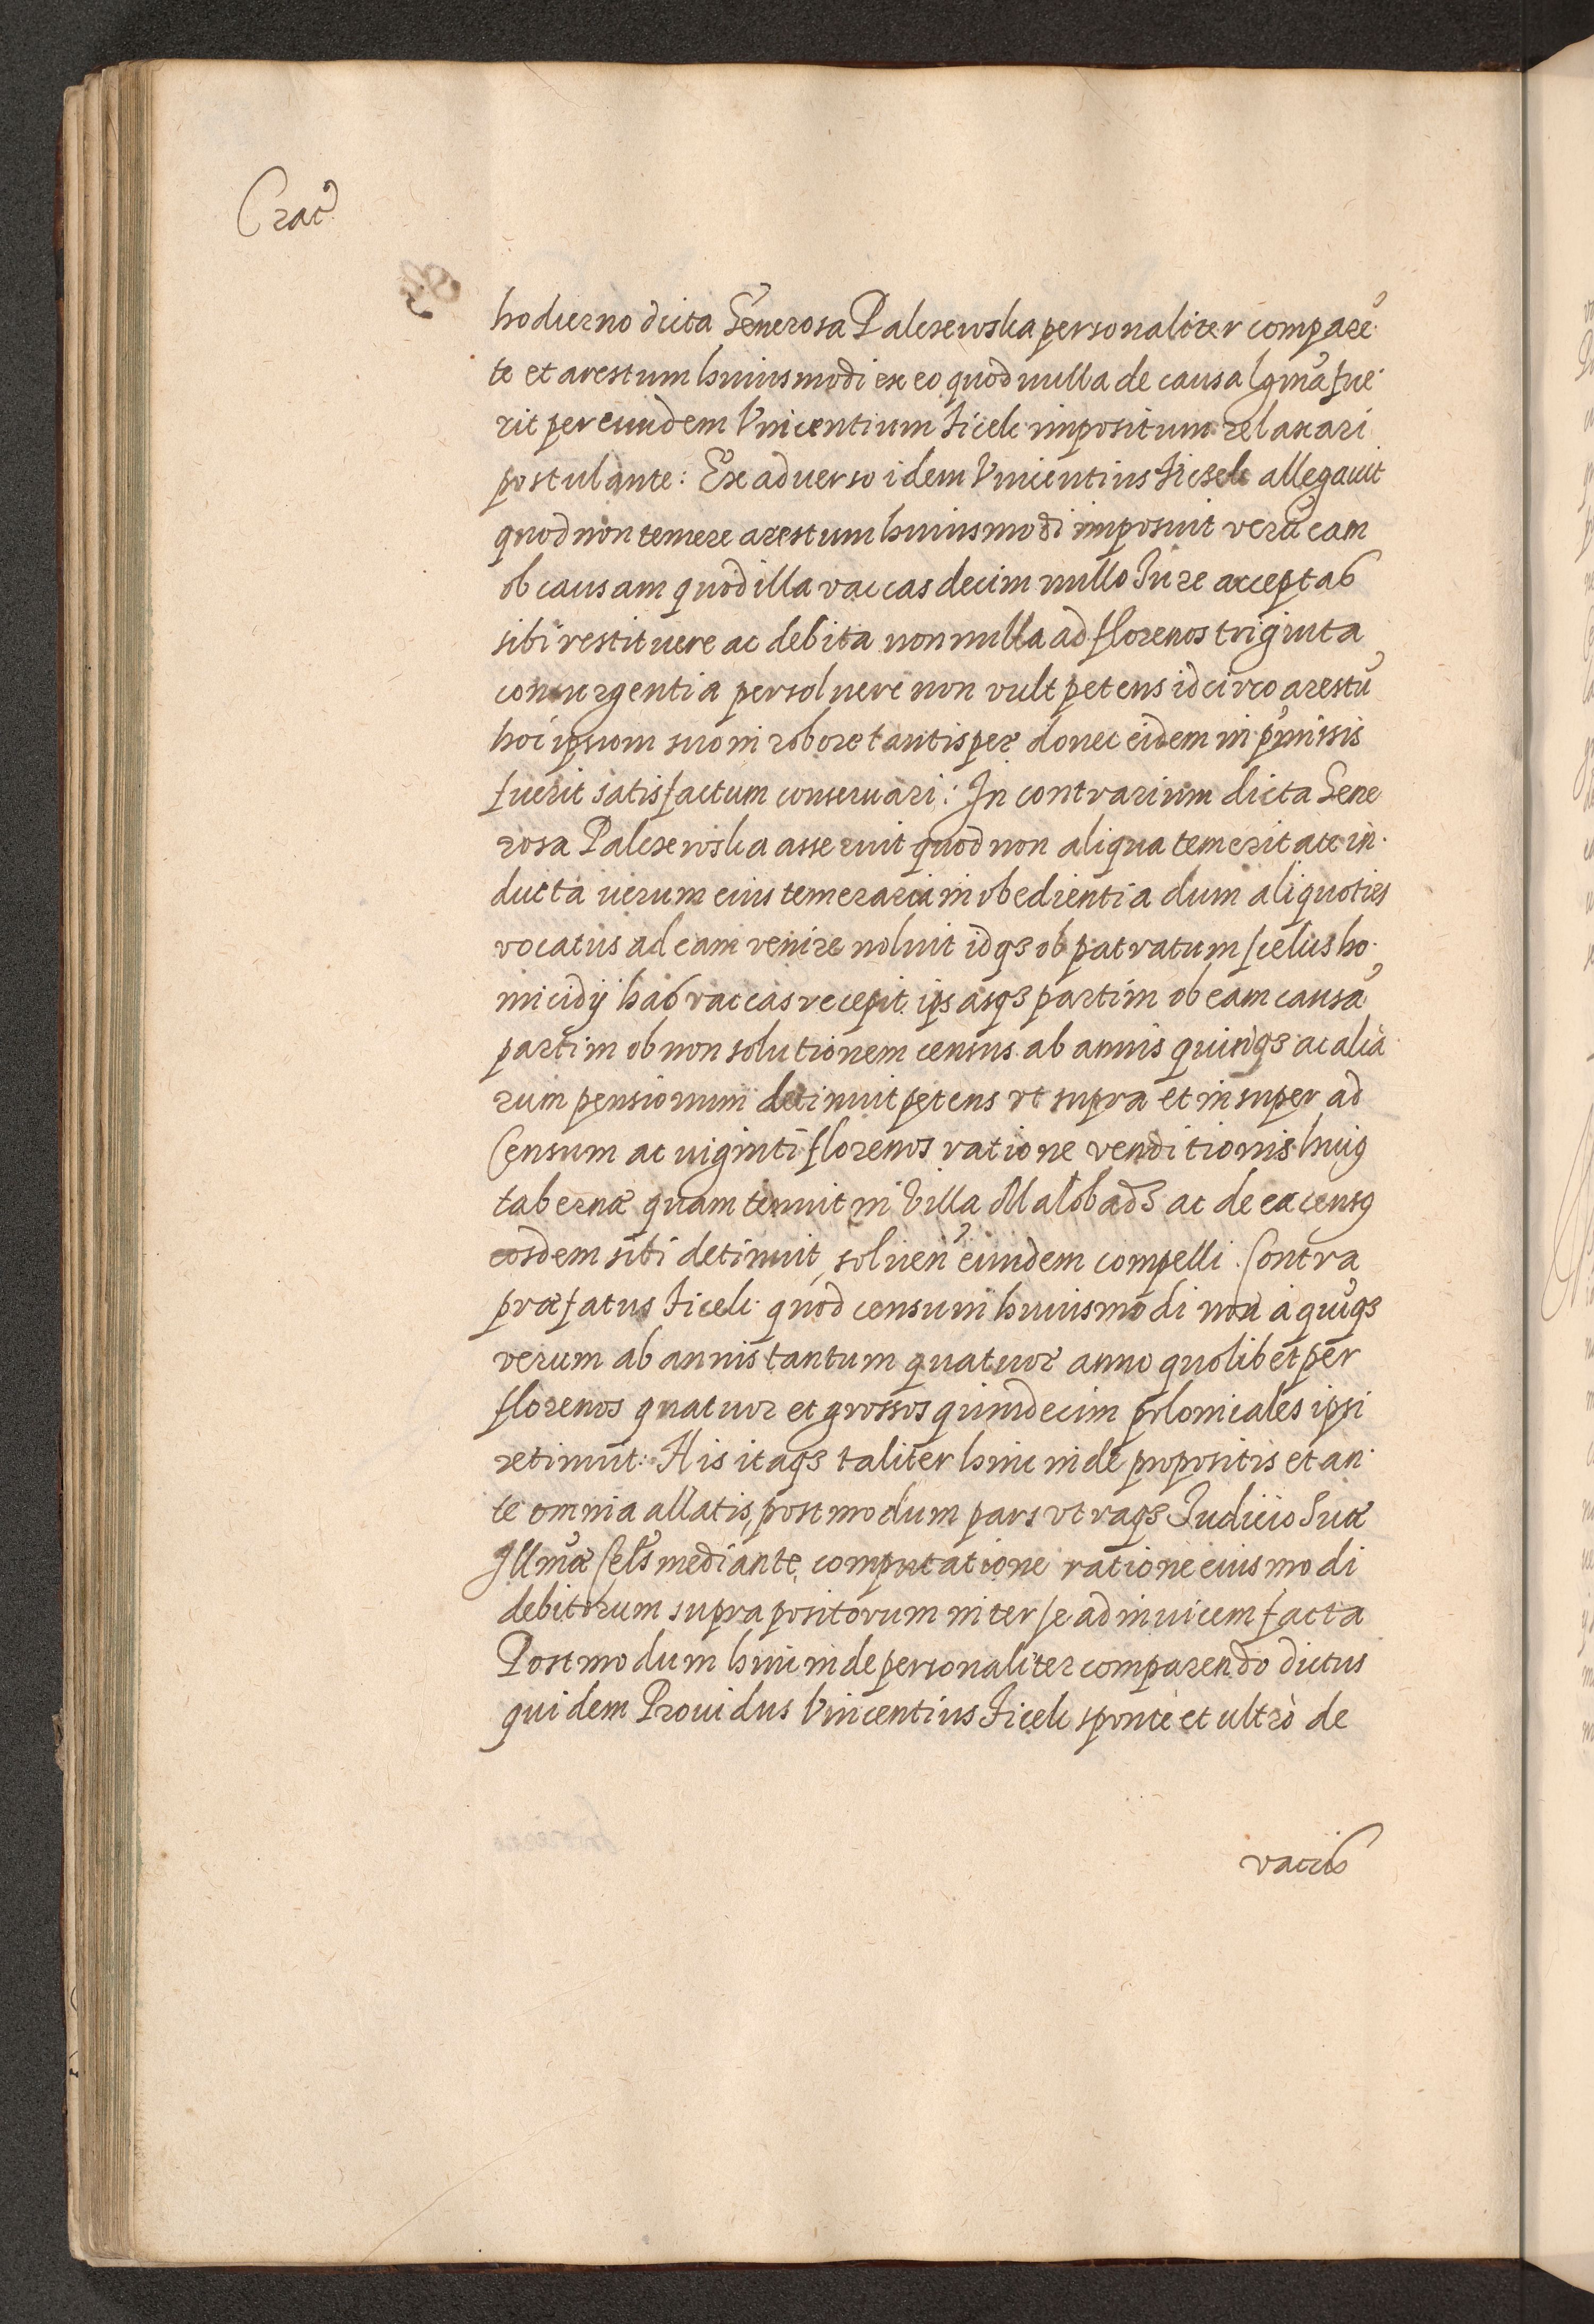 Crac
hodierno dicta Generosa Palczewska personaliter compare͂-
te et arestum huiusmodi ex eo quod nulla de causa lgma͂ fue-
rit per eundem Vincentium Ficek impositum relaxari
postulante: Ex aduerso idem Vincentius Ficzek allegauit
quod non temere arestum huiusmodi imposuit veru͂ eam
ob causam quod illa vaccas decim nullo Iure acceptas
sibi restituere ac debita nonnulla ad florenos triginta
consurgentia persoluere non vult petens idcirco arestu͂
hoc ipsum suo in robore tantisper donec eidem in p͂missis
fuerit satisfactum conseruari: In contrarium dicta Gene
rosa Palczewska asseruit quod non aliqua temeritate in-
ducta uerum eius temeraria inobedientia dum aliquoties
vocatus ad eam venire noluit idqз ob patratum scelus ho-
micidij has vaccas recepit ipsasqз partim ob eam causa͂
partim ob non solutionem census ab annis quinqз ac alia
rum pensionum detinuit petens vt supra et insuper ad
Censum ac uiginti florenos ratione venditionis huiꝯ
tabernæ quam tenuit in Villa Malobądз ac de ea censꝯ
eosdem sibi detinuit, soluen͂ eundem compelli. Contra
præfatus Ficek quod censum huiusmodi non a qui͂qз
verum ab annis tantum quatuor anno quolibet per
florenos quatuor et grossos quindecim polonicales ipsi
retinuit: His itaqз taliter hinc inde propositis et an-
te omnia allatis, postmodum pars vtraqз Iudicio Suæ
Illmæ Cels mediante, computatione ratione eiusmodi
debitorum supra positorum inter se ad inuicem facta
Postmodum hinc inde personaliter comparendo dictus
quidem Prouidus Vincentius Ficek sponte et ultrò de
vaccis